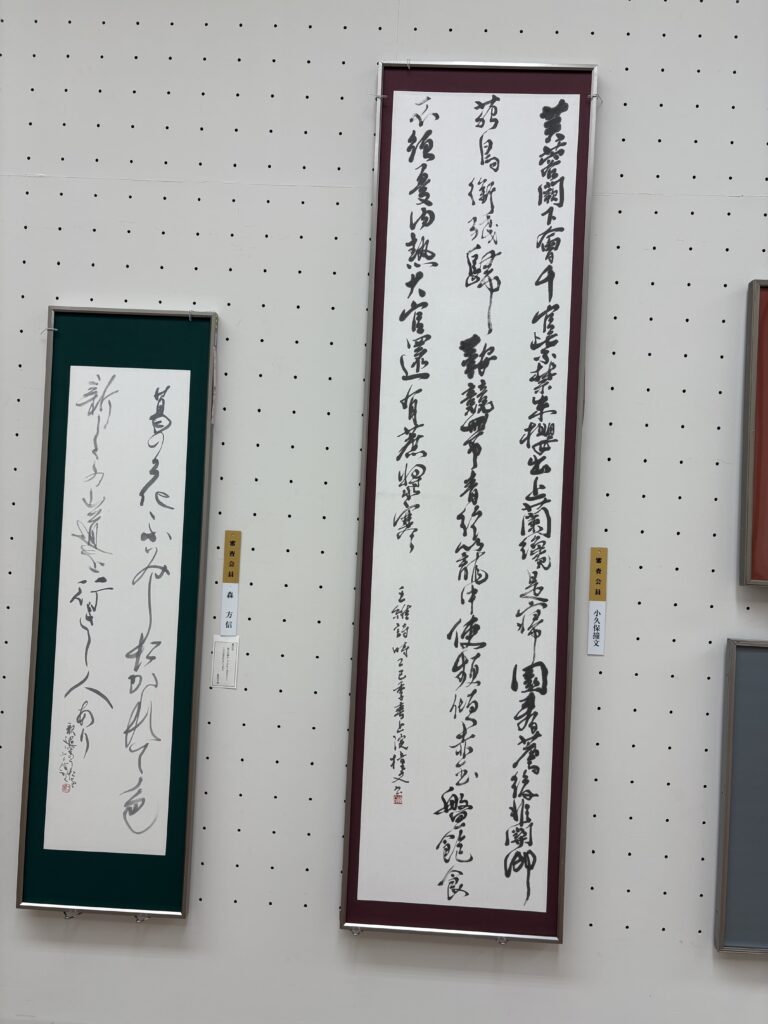 芙蓉闕下會千官紫禁朱櫻出上蘭纔是寢園春薦後非關御
苑鳥銜殘歸鞍競帶青絲籠中使頻傾赤玉盤飽食
不須愁内熱大官還有蔗漿寒
王維詩時乙巳季春上浣
審査会員
小久保
葛の花ふみしたかれて色
新しこの山道を行きし人あり
審査会員
森 方信